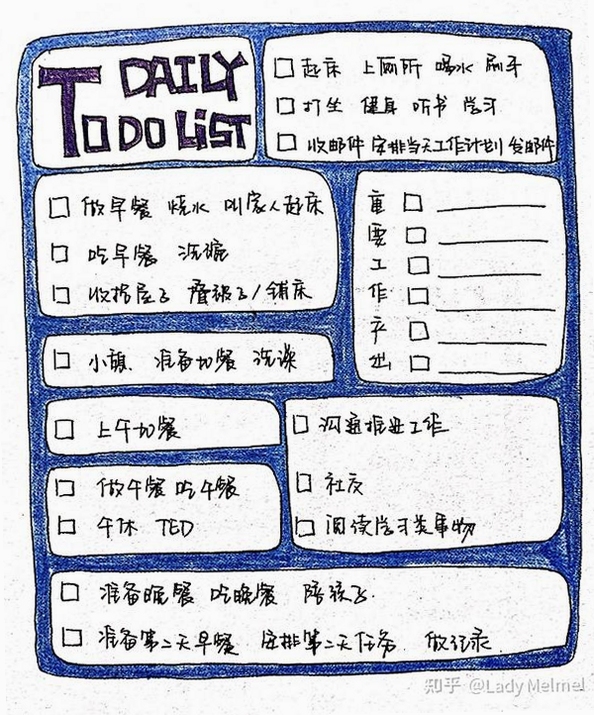 DAILY
TO DO LIST
起床 上厕所 喝水 刷牙
打坐 健身 听书 学习
收邮件 安排当天工作计划 发邮件
做早餐 烧水 叫家人起床
吃早餐 洗碗
收拾屋子 叠被子/铺床
重要工作产出
小憩、准备加餐 洗澡
上午加餐
沟通推进工作
做午餐 吃午餐
社交
午休 TED
阅读学习类事物
准备晚餐 吃晚餐 陪孩子.
准备第二天早餐 安排第二天任务 做记录
知乎 @Lady Melmel